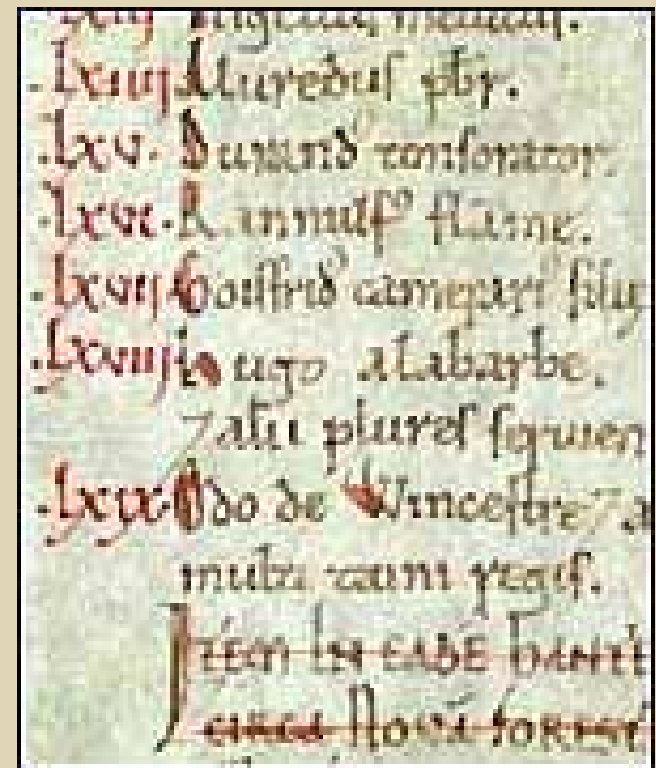 .lxiiij. Aluredus pbr.
.lxv. Durand' tonsorator.
.lxvi. Rannulf' flame.
.lxvij. Goisfrid' camerari' filiȩ
.lxviij. Hugo alabarbe.
⁊ alii plures seruien
.lxix. Odo de Wincestre ⁊ a
multi taini regis.
ITEM IN EADĒ HANT
CIRCA NOVĀ FORESTĀ